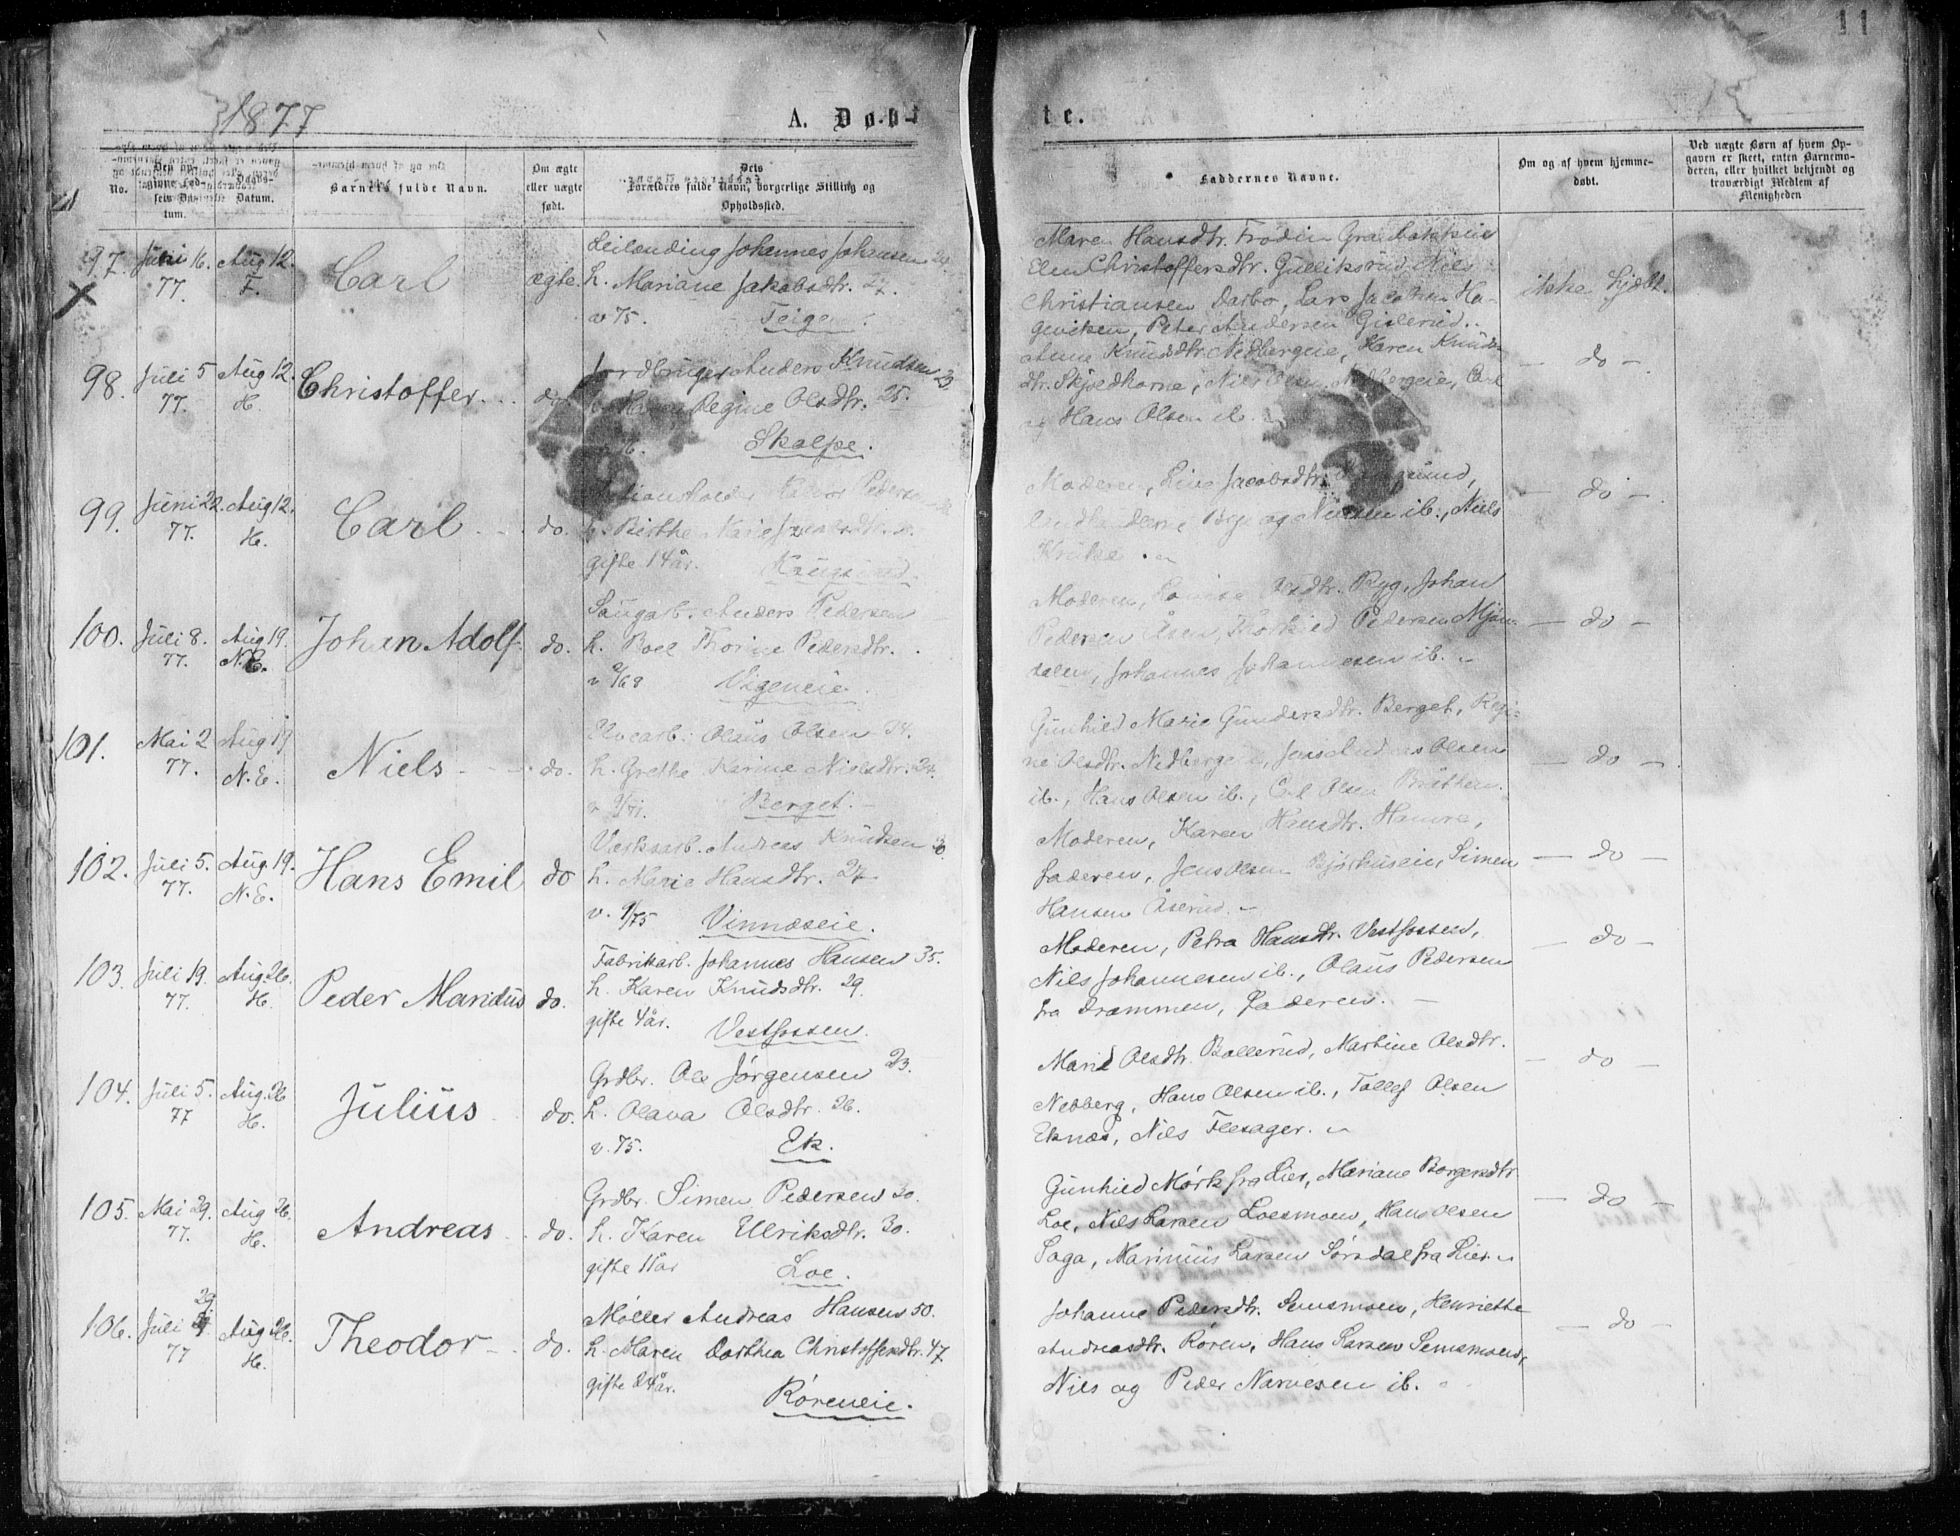 11
1877
A. Døb-
te.
No.
Den op-
givne Fød-
sels Da-
tum.
Daabs-
Datum.
Barnets fulde Navn.
Om ægte
eller uægte
født.
Dets
Forældres fulde Navn, borgerlige Stilling og
Opholdssted.
Faddernes Navne.
Om og af hvem hjemme-
døbt.
Ved uægte Børn af hvem Op-
gaven er skeet, enten Barnemo-
deren, eller hvilket bekjendt og
troværdigt Medlem af
Menigheden
97. Juni 16. 77. Aug 12. F. Carl ægte.
Leilending Johannes Johansen
h. Mariane Jakobsdtr. 27.
v 75. Teigen.
Maren Hansdtr.
Elen Christoffersdtr. Gulliksrud, Nils
Christiansen Darbo, Lars Jacobsen Ha-
geviken, Peter Andersen Gislerud.
ikke hjdbt.
98. Juli 5 77. Aug 12. H. Christoffer. do
Jordbruger Anders Knudsen 23
h. Maren Regine Olsdtr. 25.
Skalpe.
Anne Knudsdtr. Nedbergeie, Karen Knuds-
dtr. Skjoldkorne, Niels Olsen Nedbergeie, Carl
og Hans Olsen ib.
— do —
99. Juni 22. 77. Aug 12. H. Carl do.
Pedersen
h. Birthe Karie
gifte 14 år. Kongsrud.
Moderen, Line Jacobsdtr.
ib., Niels
Kruke.
— do —
100. Juli 8. 77. Aug 19. N.E. Johan Adolf do.
Saugarb. Anders Pedersen
h. Boel Thorine Pedersdtr.
v 2/68 Vegeneie.
Moderen, Lovise Olsdtr. Byg, Johan
Pedersen Åsen, Thorkild Pedersen Mjøn-
dalen, Johannes Johannesen ib.
— do —
101. Mai 2 77. Aug 19 N.E. Niels do.
Olaus Olsen 34.
h. Grethe Karine Nielsdtr. 24.
Berget.
Gunhild Marie Gundersdtr. Berget, Regi-
ne Olsdtr. Nedbergeie, Jens Andreas Olsen
ib., Hans Olsen ib., Carl Olsen Bråthen.
— do —
102. Juli 5. 77. Aug 19. N.E. Hans Emil do
Værksarb. Andreas Knudsen 30.
h. Marie Hansdtr. 27
v. 9/75 Vinnæseie.
Moderen, Karen Hansdtr. Hamre,
Faderen, Jens Olsen Bjørhuseie, Simen
Hansen Åserud.
— do —
103. Juli 19. 77. Aug. 26. H. Peder Maridus do.
Fabrikarb. Johannes Hansen 35.
h. Karen Knudsdtr. 29.
gifte 4 år. Vestfossen.
Moderen, Petra Hansdtr. Vestfossen,
Nils Johannesen ib., Olaus Pedersen
fra Drammen, Faderen.
— do —
104. Juli 5. 77 Aug. 26 H. Julius do.
Grdbr. Ole Jørgensen 23.
h. Olava Olsdtr. 26.
v. 75. Ek.
Marie Olsdtr. Bollerud, Martine Olsdtr.
Nedberg, Hans Olsen ib., Tollef Olsen
Eknæs, Nils Flesager.
— do —
105. Mai 29. 77. Aug 26. H. Andreas do.
Grdbr. Simen Pedersen 30.
h. Karen Ellriksdtr. 30.
gifte 11 år Loe.
Gunhild Mørk fra Lier, Mariane Borgersdtr.
Loe, Nils Larsen Loesmoen, Hans Olsen
Saga, Marinius Larsen Sørsdal fra Lier.
— do —
106. Juli 29 77 Aug 26. H. Theodor do.
Møller Andreas Hansen 50.
h. Maren Dorthea Christoffersdtr. 47.
gifte 24 år. Røreneie.
Johanne Pedersdtr. Semsmoen, Henriette
Andreasdtr. Røren, Hans Larsen Semsmoen,
Nils og Peder Narvesen ib.
— do —